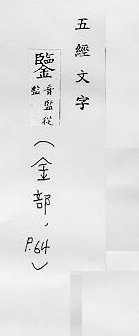 五經文字
鑒音監從
監
（金部，
P.64）